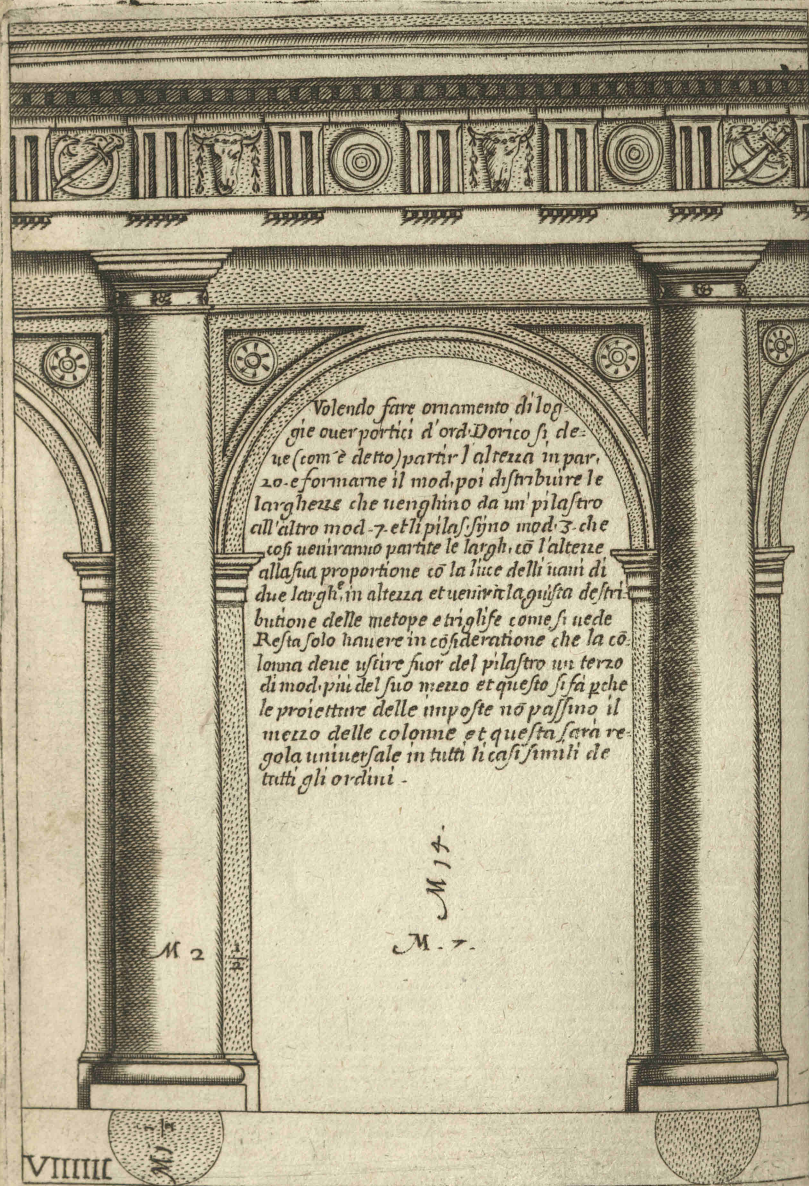 Volendo fare ornamento di log-
gie ouer portici d'ord. Dorico si de-
ue (com'è detto) partir l'altezza in par.
20. e formarne il mod. poi distribuire le
larghezze che uenghino da un' pilastro
all'altro mod. 7. et li pilas. sijno mod. 3. che
cosi ueniranno partite le largh. cō l'altezze
alla sua proportione cō la luce delli uani di
due largh.e in altezza et uenirà la giusta destri-
butione delle metope e triglife come si uede
Resta solo hauere in cōsideratione che la co-
lonna deue uscire fuor del pilastro un terzo
di mod. piu del suo mezzo et questo si fa ꝑche
le proietture delle imposte nō passino il
mezzo delle colonne et questa sarà re-
gola uniuersale in tutti li casi simili de
tutti gli ordini.
M 14.
M. 7.
M 2 1/2
M 1 1/2
VIIIIII